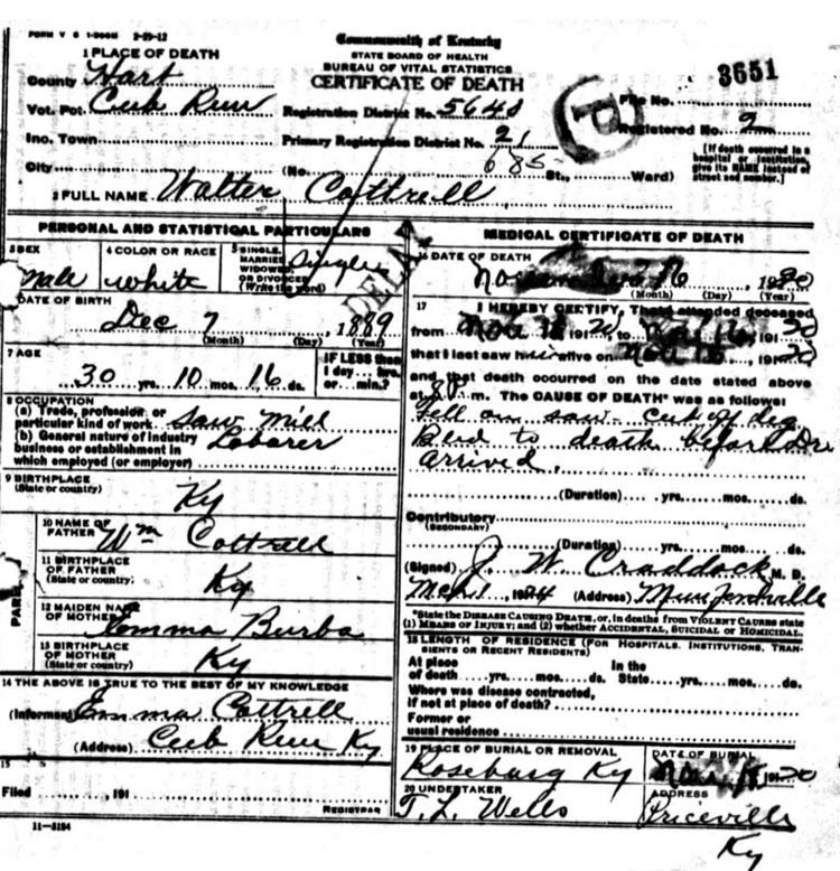 Commonwealth of Kentucky
STATE BOARD OF HEALTH
BUREAU OF VITAL STATISTICS
CERTIFICATE OF DEATH
1 PLACE OF DEATH
County Hart
Vot. Pct. Cub Run
Inc. Town
City
Registration District No. 5648
Primary Registration District No. 21
685
(No. St., Ward)
3651
File No.
Registered No. 9
[If death occurred in a
hospital or institution,
give its NAME instead of
street and number.]
2 FULL NAME Walter Cottrell
PERSONAL AND STATISTICAL PARTICULARS
3 SEX
Male
4 COLOR OR RACE
white
5 SINGLE,
MARRIED
WIDOWED
OR DIVORCED
(Write the word)
Single
DATE OF BIRTH
Dec 7, 1889
(Month) (Day) (Year)
7 AGE
30 yrs. 10 mos. 16 ds.
IF LESS than
1 day hrs.
or min.?
8 OCCUPATION
(a) Trade, profession or
particular kind of work Saw Mill
(b) General nature of industry
business or establishment in
which employed (or employer)
Laborer
9 BIRTHPLACE
(State or country)
Ky
10 NAME OF
FATHER Wm Cottrell
11 BIRTHPLACE
OF FATHER
(State or country)
Ky
12 MAIDEN NAME
OF MOTHER Emma Burba
13 BIRTHPLACE
OF MOTHER
(State or country)
Ky
14 THE ABOVE IS TRUE TO THE BEST OF MY KNOWLEDGE
(Informant) Emma Cottrell
(Address) Cub Run Ky
15
Filed 191
REGISTRAR
11-3184
MEDICAL CERTIFICATE OF DEATH
16 DATE OF DEATH
16
(Month) (Day) (Year)
17 I HEREBY CERTIFY, That I attended deceased
from Nov 191 20, to 16, 191 20
that I last saw him alive on 191 20
and that death occurred on the date stated above
at m. The CAUSE OF DEATH* was as follows:
Fell on saw- cut off leg
Bled to death before Dr
arrived.
(Duration) yrs. mos. ds.
Contributory
(SECONDARY)
(Duration) yrs. mos. ds.
(Signed) J. W. Craddock M. D.
(Address) Munfordville
*State the DISEASE CAUSING DEATH, or, in deaths from VIOLENT CAUSES state
(1) MEANS OF INJURY; and (2) whether ACCIDENTAL, SUICIDAL or HOMICIDAL.
18 LENGTH OF RESIDENCE (FOR HOSPITALS, INSTITUTIONS, TRAN-
SIENTS OR RECENT RESIDENTS)
At place
of death yrs. mos. ds.
In the
State yrs. mos. ds.
Where was disease contracted,
if not at place of death?
Former or
usual residence
19 PLACE OF BURIAL OR REMOVAL
Roseburg Ky
DATE OF BURIAL
191 20
20 UNDERTAKER
T. L. Wells
ADDRESS
Priceville
Ky